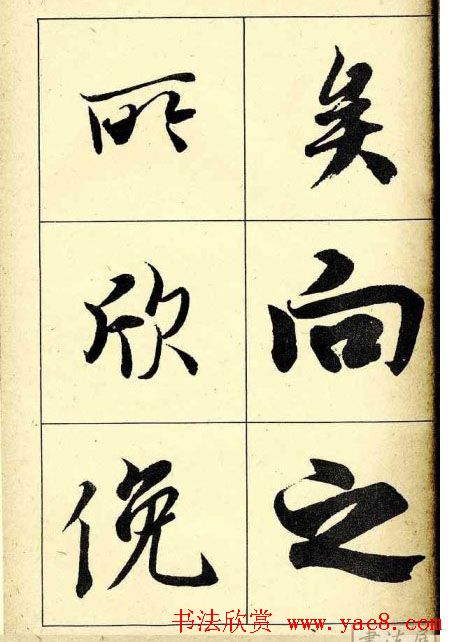 矣向之
所欣俛
书法欣赏 www.yac8.com